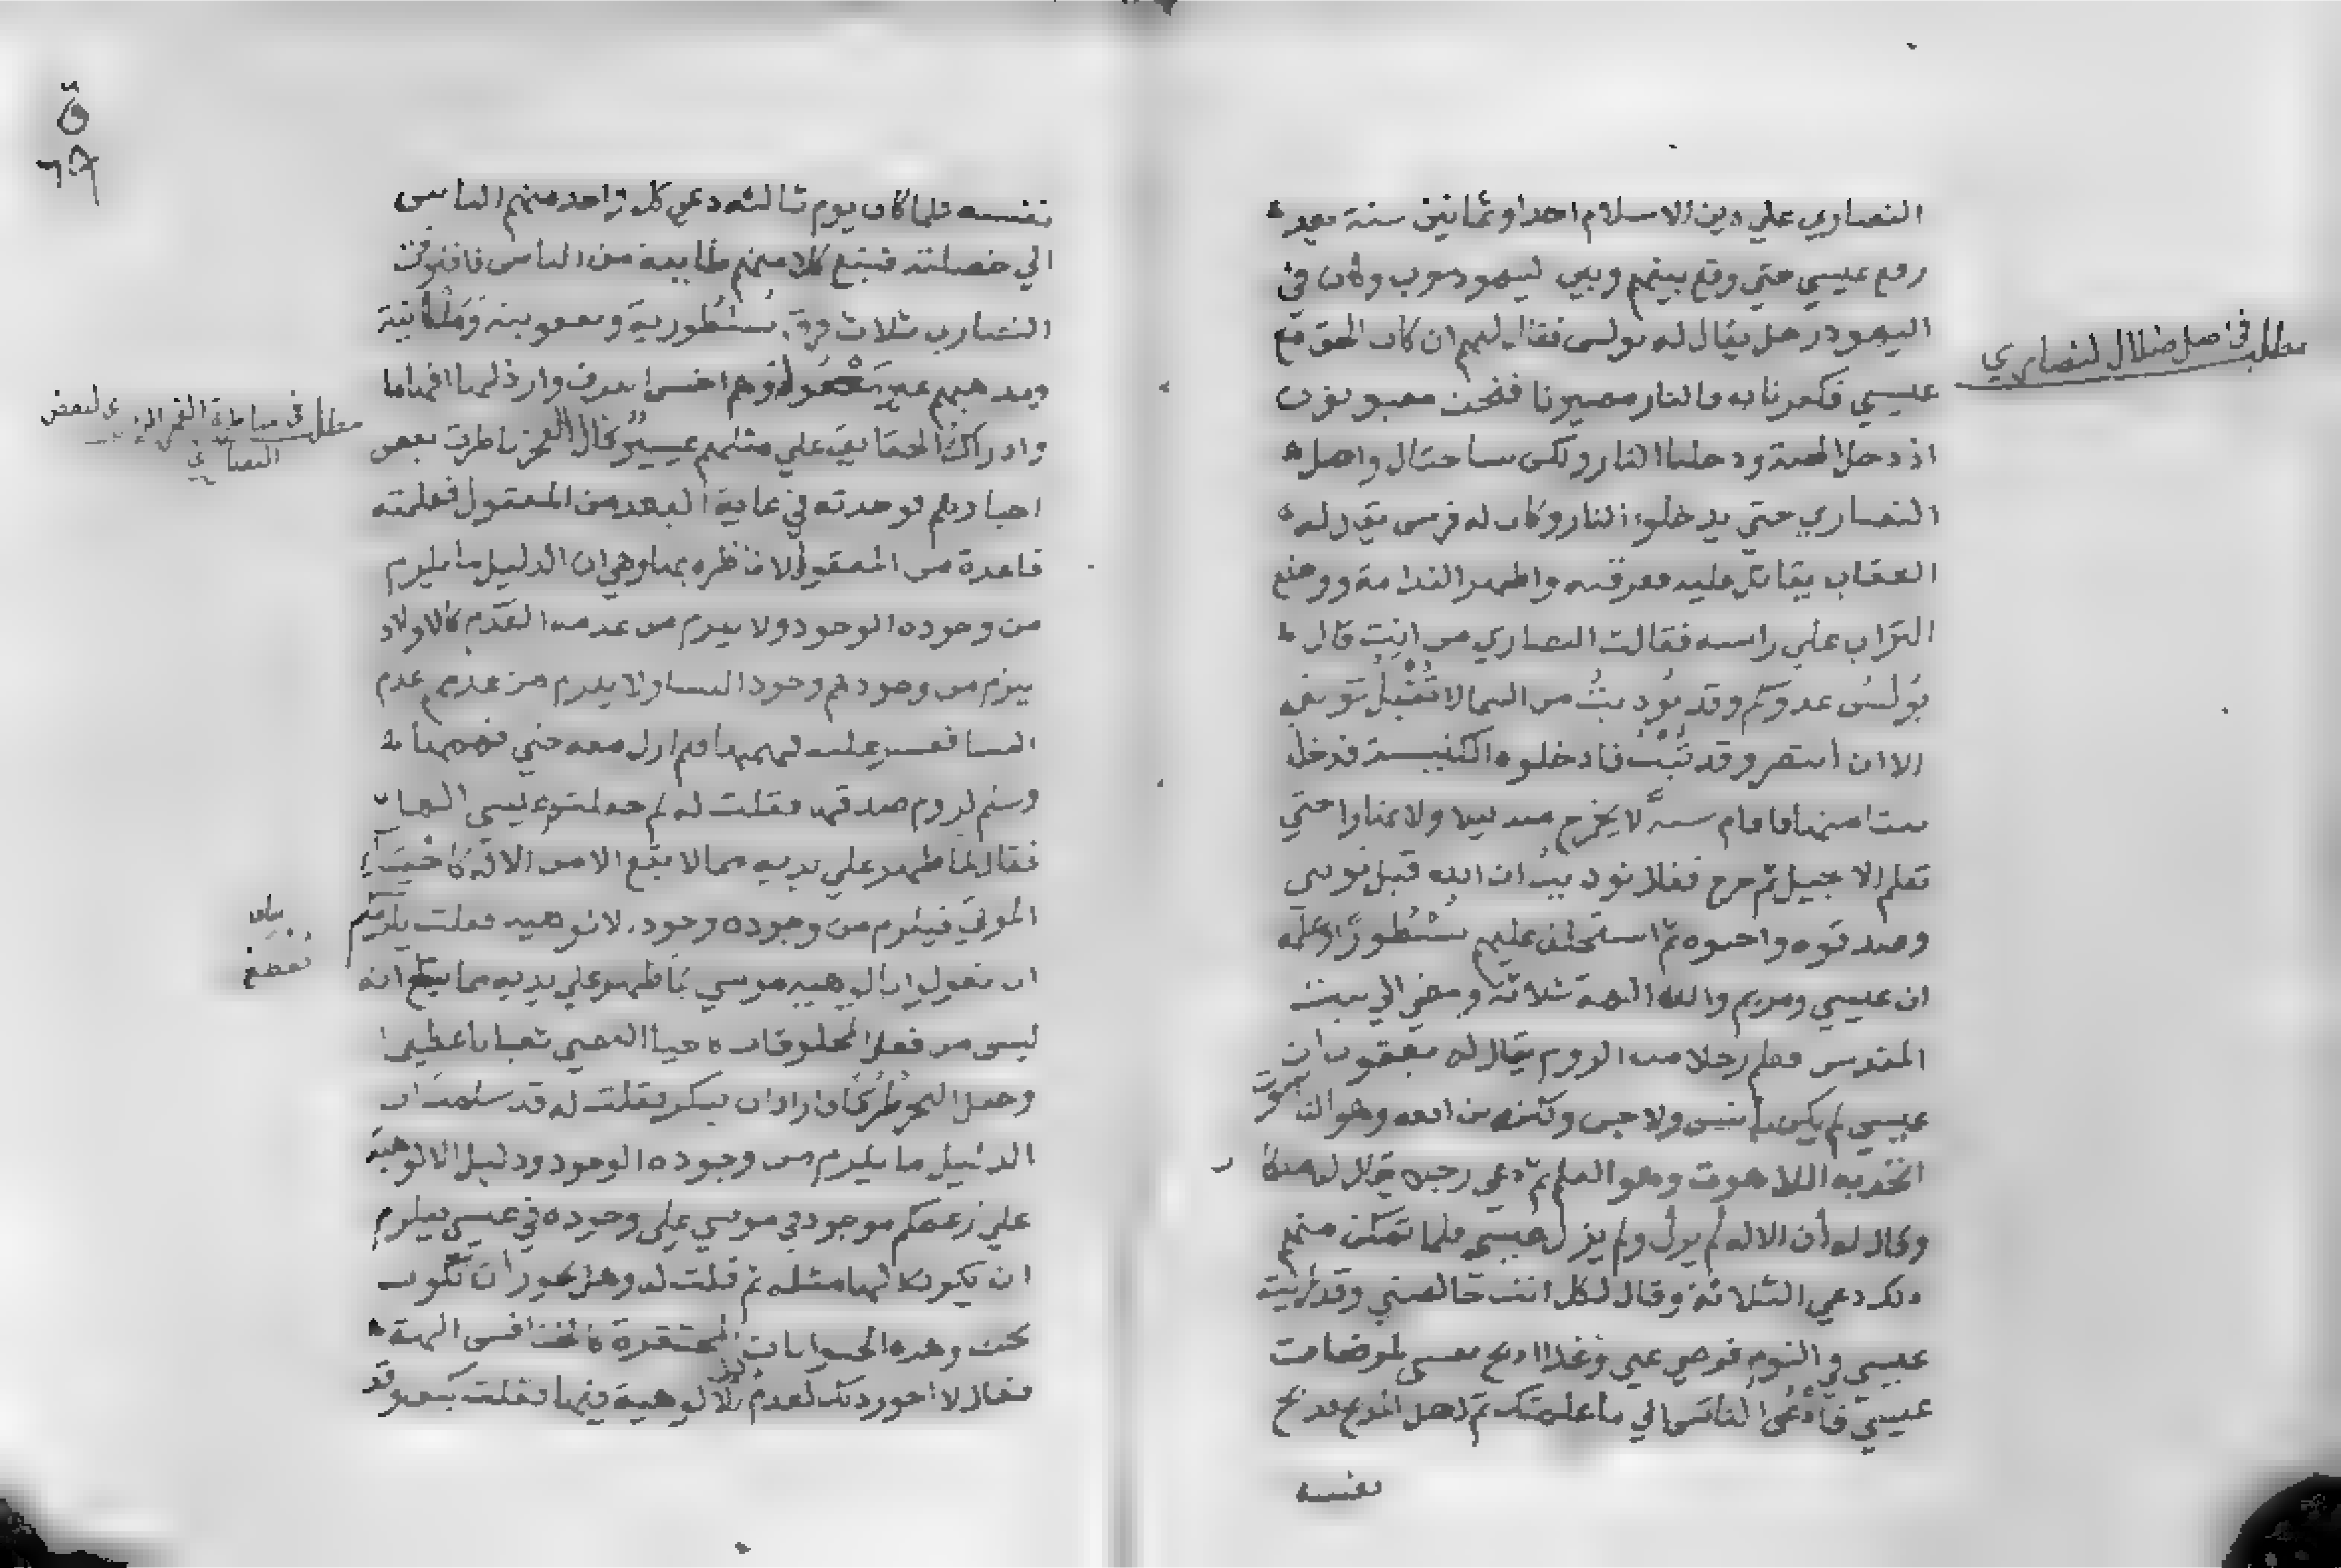 النصاري علي دين الاسلام احدا وثمانين سنة بعد
رفع عيسي حتي وقع بينهم وبين اليهود حرب وكان في
اليهود رجل يقال له بولس فقال لهم ان كان الحق مع
عيسي فكفرنا به فالنار مصيرنا فنحن مغبونون
اذ دخلوا الجنة ودخلنا النار ولكن ساحتال واضل
النصاري حتي يدخلوا النار وكان له فرس يقال له
العقاب يقاتل عليه فعرقبه واظهر الندامة ووضع
التراب علي راسه فقالت النصاري من انت قال
بولس عدوكم وقد نوديت من السما لا تقبل توبتي
الا ان أتنصر وقد تبت فادخلوه الكنيسة فدخل
بيتا منها فاقام سنة لا يخرج منه ليلا ولا نهارا حتي
تعلم الانجيل ثم خرج فقال نوديت ان الله قبل توبتي
وصدقوه واحبوه ثم استخلف عليهم نسطورا وعلمه
ان عيسي ومريم والله الهة ثلاثة ومضي الي بيت
المقدس فعلم رجلا من الروم يقال له يعقوب ان
عيسي لم يكن بأنس ولا جن ولكنه بن الله وهو الناسوت
اتخذ به اللاهوت وهو العلم ثم دعي رجلا يقال له ملكا
وقال له أن الاله لم يزل ولم يزل عيسي فلما تمكن منهم
ذلك دعي الثلاثة وقال لكل انت خالصتي وقد رايت
عيسي في النوم فرضي عني وغدا اذبح نفسي لمرضات
عيسي فأدعي الناس الي ما علمتك ثم دخل المذبح فذبح
نفسه
مطلب في اصل ضلال النصاري
نفسه فلما كان يوم ثالثه دعي كل واحد منهم الناس
الي خصلته فتبع كلا منهم طايفة من الناس فافترقت
النصاري ثلاث فرق نسطورية ويعقوبية وملكانية
ومذهبهم غير معقول وهم اخس الفرق وارذلها افهاما
وادراك الحقايق علي مثلهم عسير وقال الفخر ناظرت بعض
احبارهم فوجدته في غاية البعد من المعقول فعلمته
قاعدة من المعقول لاناظره بها وهي ان الدليل ما يلزم
من وجوده الوجود ولا يلزم من عدمه العدم كالاولاد
يلزم من وجودهم وجود النسا ولا يلزم من عدمهم عدم
النسا فعسر عليه فهمها فلم ازل معه حتي فهمها
وسلم لزوم صدقها فقلت له لم جعلتم عيسي الها
فقال لما ظهر علي يديه مما لا يقع الا من الاله كاحيا
الموتي فيلزم من وجوده وجود الالوهيه فقلت يلزمكم
ان تقولوا بالوهيه موسي لما ظهر علي يديه مما يقطع انه
ليس من فعل المخلوقات كاحيا العصي ثعبانا عظيما
وجعل البحر طرقا فاراد ان ينكر فقلت له قد سلمت ان
الدليل ما يلزم من وجوده الوجود ودليل الالوهية
علي زعمكم موجود في موسي علي وجوده في عيسي فيلزم
ان يكون الها مثله ثم قلت له وهل يجوز أن تكون
نحن وهذه الحيوانات المحتقرة كالخنافس الهة
فقال لا اجوز ذلك لعدم دليل الالوهية فينا فقلت كيف وقد
مطلب في مناظرة الفخر الرازي لبعض
النصاري